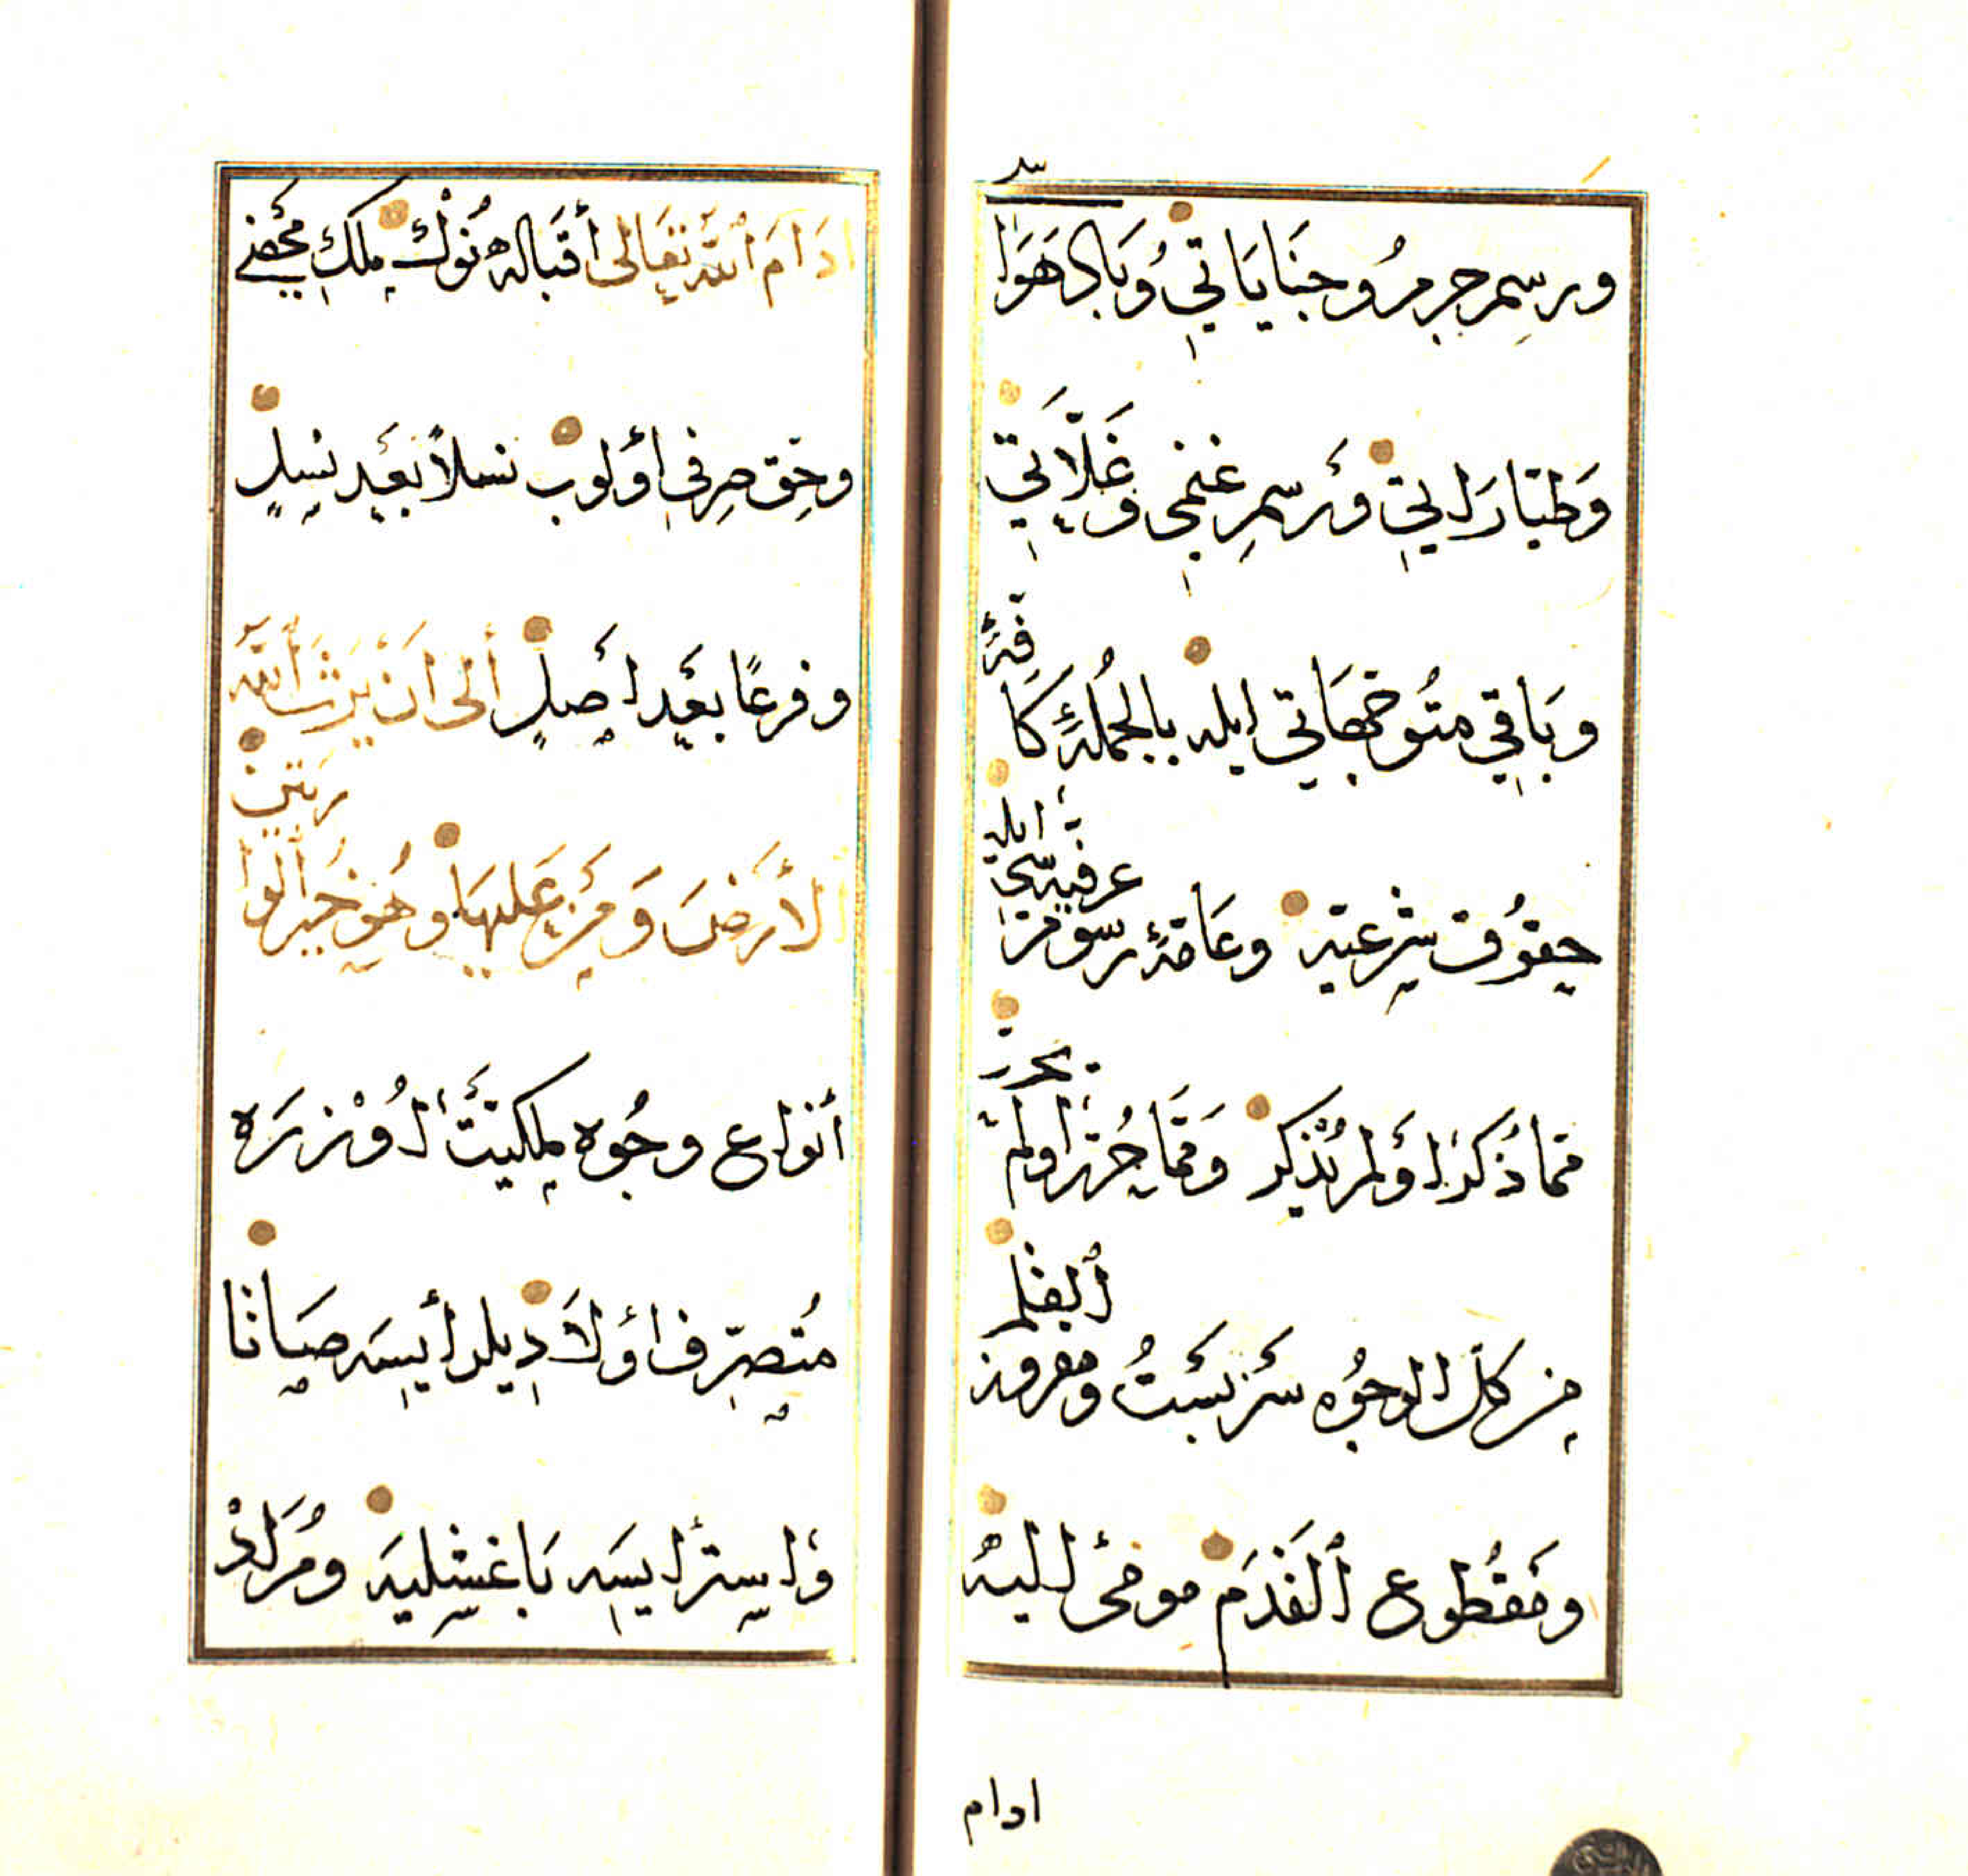 ورسم جرم وجناياتي وبادهواسي
وطپاراتي ورسم غنمي وغلاتي
وباقي متوجهاتي ايله بالجمله كافه
حقوق شرعيه وعامه رسوم عرفيه سي ايله
مما ذكر او لم يذكر ومما حرر او لم يحرر
من كل الوجوه سربست ومفروز القلم
ومقطوع القدم مومى اليه
ادام
ادام الله تعالى أقباله نوك ملك محضي
وحق صرفي اولوب نسلا بعد نسل
وفرعا بعد اصل الى ان يرث الله
الأرض ومن عليها وهو خير الوارثين
أنواع وجوه ملكيت اوزره
متصرف اولا ديلر ايسه صاتا
و استر ايسه باغشليه ومراد